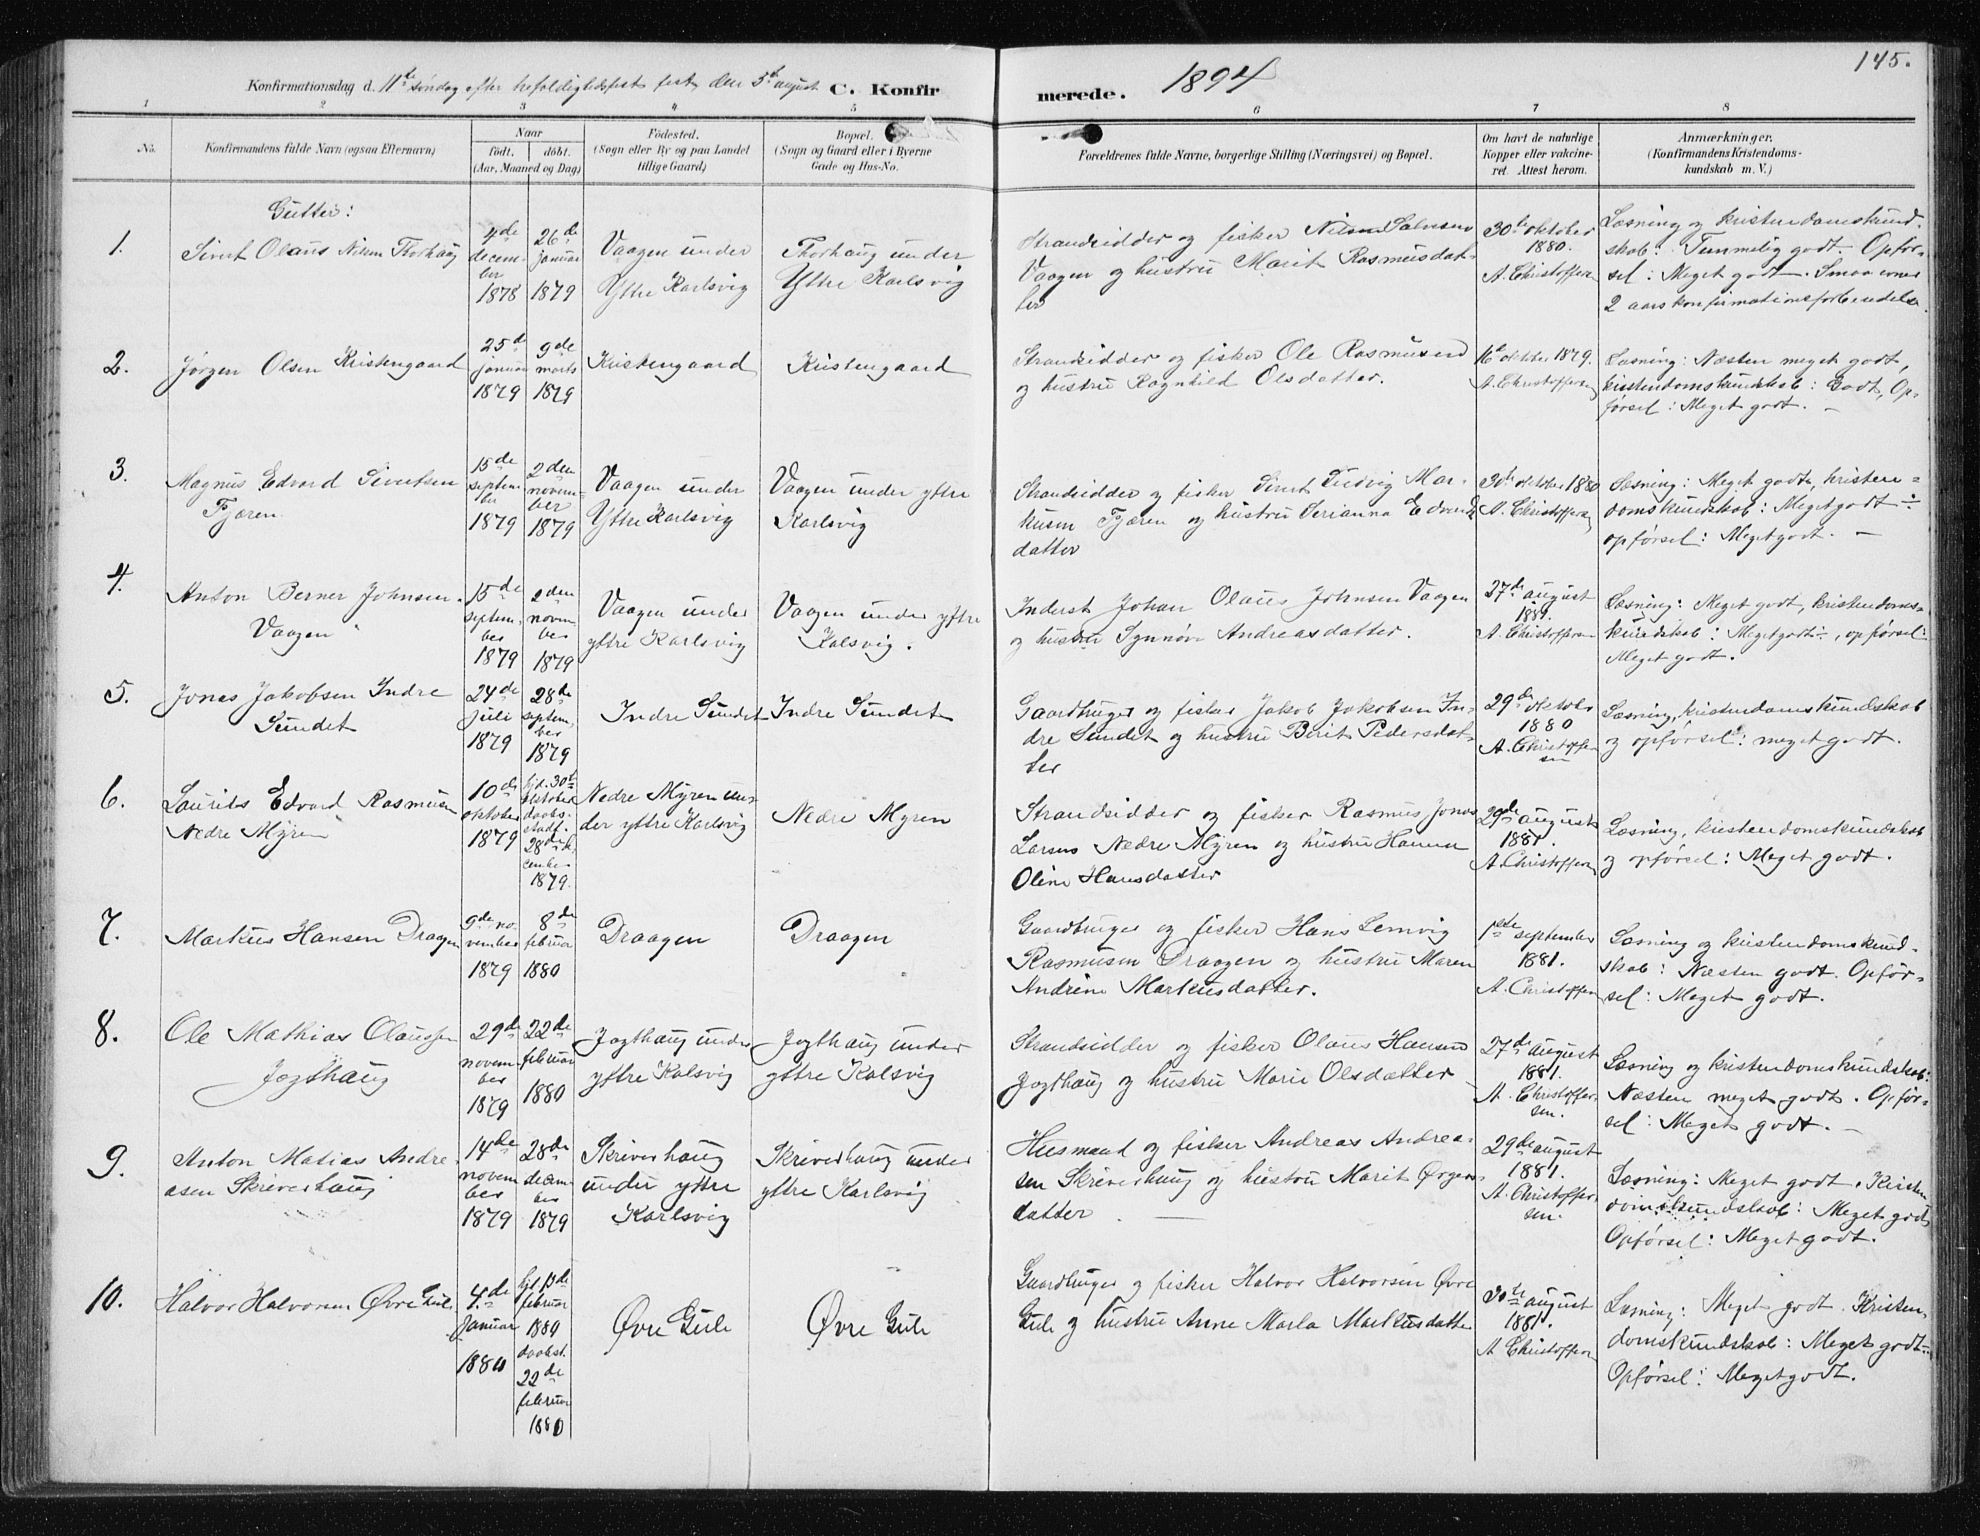 145.
Konfirmationsdag d. 11te søndag efter trefoldighedsfest den 5te august C. Konfirmerede. 1894
1 2 3 4 5 6 7 8
No.
Konfirmandens fulde Navn (ogsaa Efternavn)
Naar
født. døbt.
(Aar, Maaned og Dag)
Fødested.
(Sogn eller By og paa Landet
tillige Gaard)
Bopæl.
(Sogn og Gaard eller i Byerne
Gade og Hus-No.
Forældrenes fulde Navne, borgerlige Stilling (Næringsvei) og Bopæl.
Om havt de naturlige
Kopper eller vakcine-
ret. Attest herom.
Anmærkninger.
(Konfirmandens Kristendoms-
kundskab m. V.)
Gutter:
1.
Sivert Olaus Nilsen Thorhaug
4de
decem-
ber
1878
26de
januar
1879
Vaagen under
Ytre Karlsvig
Thorhaug under
Ytre Karlsvig
Strandsidder og fisker Nils Salvesen
Vaagen og hustru Marit Rasmusdat-
ter
30te oktober
1880.
A. Christoffersen
Læsning og kristendomskund-
skab: Temmelig godt. Opfør-
sel: Meget godt. Smaa evner
2 aars konfirmationsforberedelse.
2.
Jørgen Olsen Kristengaard
25de
januar
1879
9de
marts
1879
Kristengaard
Kristengaard
Strandsidder og fisker Ole Rasmussen
og hustru Ragnhild Olsdatter.
16de oktober 1879.
A. Christoffersen
Læsning: Næsten meget godt,
kristendomskundskab: Godt, Op-
førsel: Meget godt. –
3.
Magnus Edvard Sivertsen
Fjæren
15de
septem-
ber
1879
2den
novem-
ber
1879
Vaagen under
Ytre Karlsvig
Vaagen under ytre
Karlsvig
Strandsidder og fisker Sivert Ludvig Mar-
kusen Fjæren og hustru Serianna Edvards
datter
30te oktober 1880
A. Christoffersen
Læsning: Meget godt, kristen-
domskundskab: Meget godt ÷
opførsel: Meget godt. –
4.
Anton Berner Johnsen
Vaagen
15de
septem-
ber
1879
2den
novem-
ber
1879
Vaagen under
ytre Karlsvig
Vaagen under ytre
Kalsvig.
Inderst Johan Olaus Johnsen Vaagen
og hustru Synnøv Andreasdatter.
27de august
1881.
A. Christoffersen
Læsning: Meget godt, kristendoms-
kundskab: Meget godt ÷, opførsel:
Meget godt.
5.
Jonas Jakobsen Indre
Sundet
24de
juli
1879
28de
septem-
ber
1879
Indre Sundet
Indre Sundet
Gaardbruger og fisker Jakob Jakobsen In-
dre Sundet og hustru Berit Pedersdat-
ter
29de oktober
1880
A. Christoffer-
sen
Læsning, kristendomskundskab
og opførsel: meget godt.
6.
Laurits Edvard Rasmusen
Nedre Myren
10de
oktober
1879
hjd. 30te
oktober
daabs-
stadf.
28de de-
cember
1879.
Nedre Myren un-
der ytre Karlsvig
Nedre Myren
Strandsidder og fisker Rasmus Jonas
Larsen Nedre Myren og hustru Hanna
Oline Hansdatter
29de august
1881.
A. Christoffersen
Læsning, kristendomskundskab
og opførsel: Meget godt.
7.
Markus Hansen Draagen
9de no-
vember
1879
8de
februar
1880
Draagen
Draagen
Gaardbruger og fisker Hans Lemvig
Rasmusen Draagen og hustru Maren
Andrine Markusdatter.
1ste september
1881.
A. Christoffersen
Læsning og kristendomskund-
skab: Næsten godt. Opfør-
sel: Meget godt.
8.
Ole Mathias Olaussen
Jogthaug
29de
novem-
ber
1879
22de
februar
1880
Jogthaug under
ytre Kalsvig
Jogthaug under
ytre Kalsvig
Strandsidder og fisker Olaus Hansen
Jogthaug og hustru Marie Olsdatter
27de august
1881.
A. Christoffer-
sen.
Læsning og kristendomskundskab:
Næsten meget godt. Opfør-
sel: Meget godt. –
9.
Anton Matias Andre-
asen Skriverhaug
14de
novem
ber
1879
28de
decem-
ber
1879
Skriverhaug
under ytre
Karlsvig
Skriverhaug under
ytre Karlsvig
Husmand og fisker Andreas Andrea-
sen Skriverhaug og hustru Marit Ørgens-
datter
29de august
1881.
A. Christoffer-
sen.
Læsning: Meget godt. Kristen
domskundskab: Meget godt,
Opførsel: Meget godt.
10.
Halvor Halvorsen Øvre Gule
4de
januar
1880
hjd. 13de
februar
1880
daabst.
22de
februar
1880
Øvre Gule
Øvre Gule
Gaardbruger og fisker Halvor Halvorsen Øvre
Gule og hustru Anne Marta Markusdatter
30te august
1881.
A. Christoffersen
Læsning: Meget godt. Kristen-
domskundskab: Meget godt.
Opførsel: Meget godt.